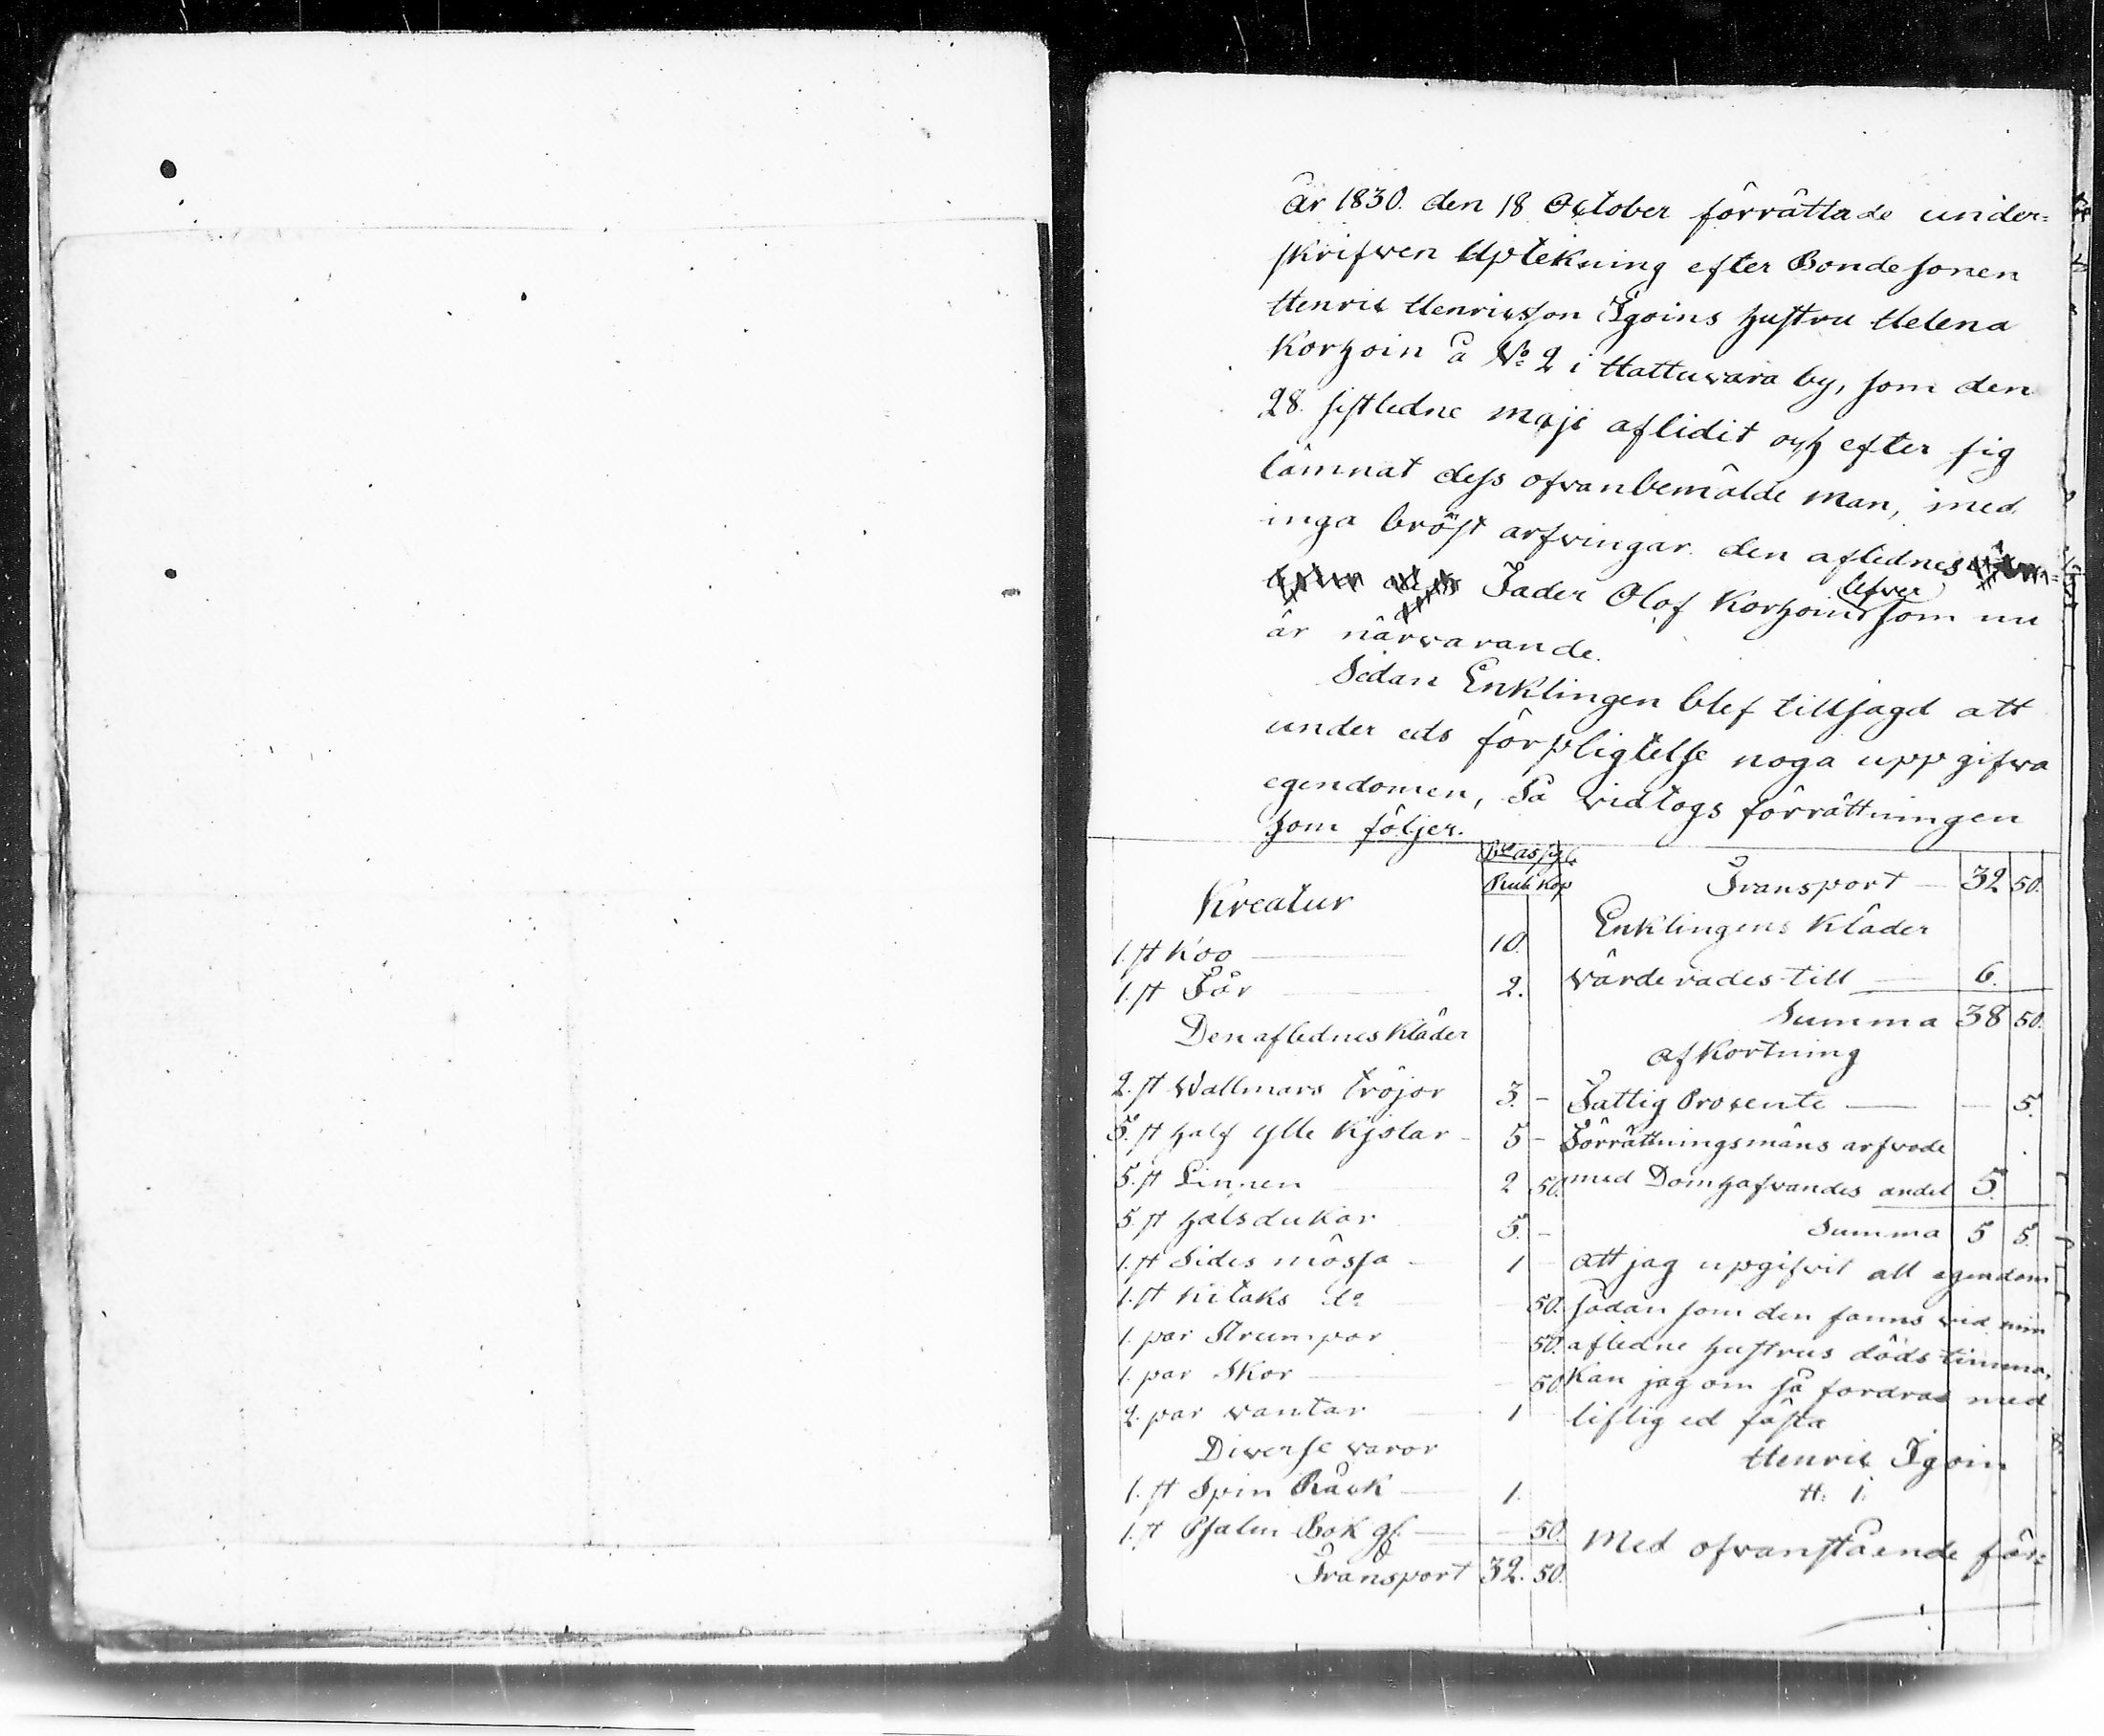 år 1830. den 18 October förrättade under=
skrifwen Uptekning efter Bondesonen
Henric Henricsson Igoins hustru Helena
Korhoin å No 2 i Hattuvara by, som den
28. sistledne maji aflidit och efter sig
lämnat dess ofvanbemälde man, med
inga bröst arfvingar. den aflednes
Fader Olof Korhoin lefver som nu
är närvarande.
Sedan Enklingen blef tillsagd att
under eds förpligtelse noga uppgifva
egendomen, så vidtogs förrättningen
som följer.
Bco assig.
Rub Kop
Kreatur
1. st Koo 10.
1. st Får 2.
Den aflednes kläder
2. st Wallmars tröjor 3. -
5. st half ylle Kjolar - 5 -
5. st Linnen 2 50.
5. st halsdukar 5. -
1. st Sides mössa - 1 -
1. st Kitaks do - 50.
1. par Strumpor - 50.
1. par Skor - 50.
2. par vantar 1
Diverse varor
1. st Spin Råck 1.
1. st Psalm Bok gl. - 50
Transport 32. 50.
Transport - 32 50.
Enklingens Kläder
värderades till 6.
Summa 38 50.
afkortning
Fattig Procente - 5.
Förrättningsmäns arfvode
med Domhafvandes andel 5.
Summa 5 5.
Att jag upgifvit all egendom
sådan som den fanns vid min
afledne hustrus döds timma,
Kan jag om så fordras med
liflig ed fästa
Henric Igoin
H. I.
Med ofvanstående för=